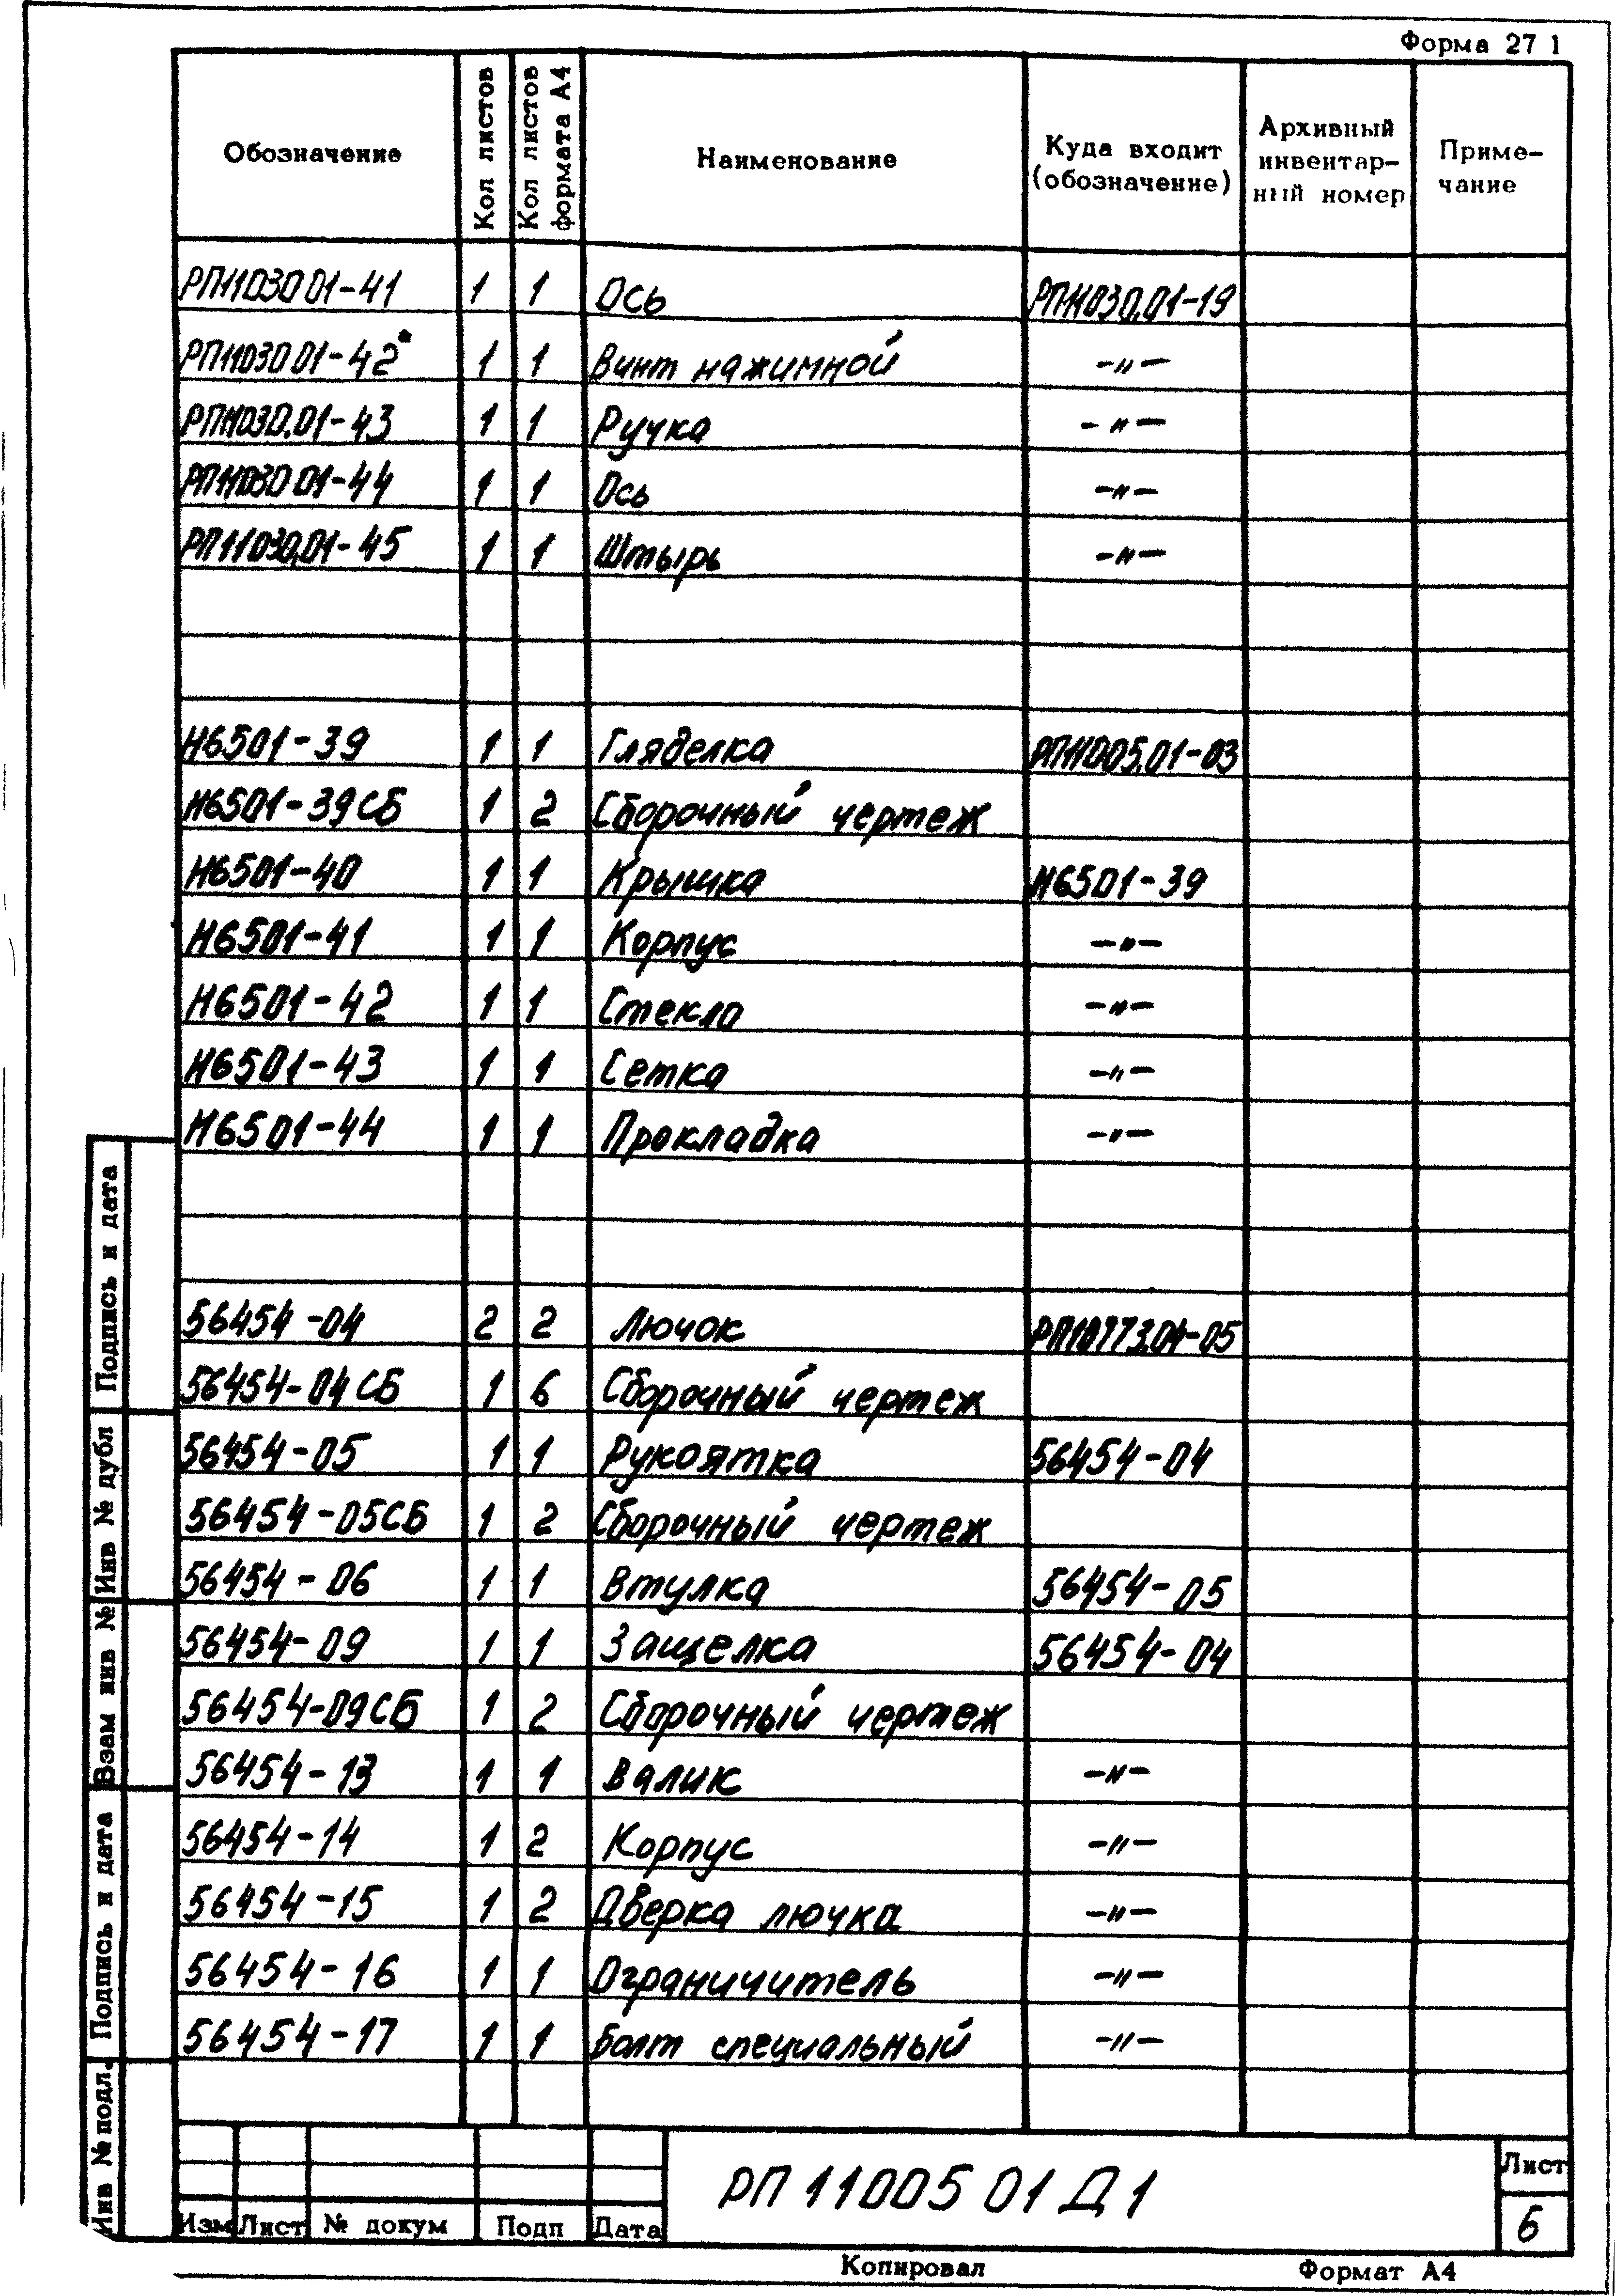 Форма 27 1
Обозначение | Кол листов | Кол листов формата А4 | Наименование | Куда входит (обозначение) | Архивный инвентар-ный номер | Приме-чание
РП11030 01-41 1 1 Ось РП11030.01-19
РП11030 01-42* 1 1 Винт нажимной -"-
РП11030.01-43 1 1 Ручка -"-
РП11030 01-44 1 1 Ось -"-
РП11030.01-45 1 1 Штырь -"-
Н6501-39 1 1 Гляделка РП11005.01-03
Н6501-39СБ 1 2 Сборочный чертеж
Н6501-40 1 1 Крышка Н6501-39
Н6501-41 1 1 Корпус -"-
Н6501-42 1 1 Стекло -"-
Н6501-43 1 1 Сетка -"-
Н6501-44 1 1 Прокладка -"-
56454-04 2 2 Лючок РП10773.04-05
56454-04СБ 1 6 Сборочный чертеж
56454-05 1 1 Рукоятка 56454-04
56454-05СБ 1 2 Сборочный чертеж
56454-06 1 1 Втулка 56454-05
56454-09 1 1 Защелка 56454-04
56454-09СБ 1 2 Сборочный чертеж
56454-13 1 1 Валик -"-
56454-14 1 2 Корпус -"-
56454-15 1 2 Дверка лючка -"-
56454-16 1 1 Ограничитель -"-
56454-17 1 1 Болт специальный -"-
Подпись и дата
Инв № дубл
Взам инв №
Подпись и дата
Инв № подл.
РП 11005 01 Д1
Лист
6
Изм Лист № докум Подп Дата
Копировал Формат А4